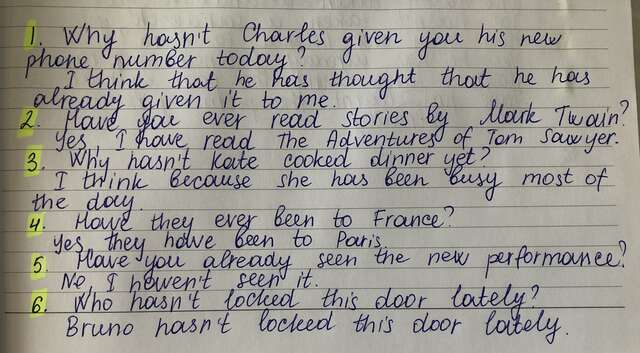 1. Why hasn't Charles given you his new
phone number today?
I think that he has thought that he has
already given it to me.
2. Have you ever read stories by Mark Twain?
Yes, I have read The Adventures of Tom Sawyer.
3. Why hasn't Kate cooked dinner yet?
I think because she has been busy most of
the day.
4. Have they ever been to France?
Yes they have been to Paris.
5. Have you already seen the new performance?
No I haven't seen it.
6. Who hasn't locked this door lately?
Bruno hasn't locked this door lately.